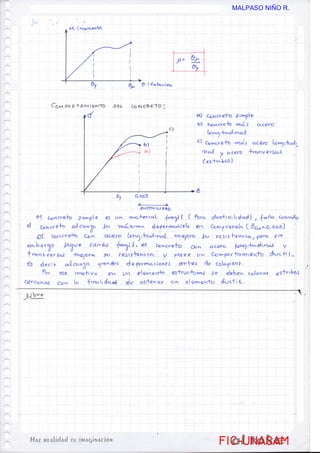 MALPASO NIÑO R.
M (momento)
μ = θu / θy
θy θu θ (rotación)
COMPORTAMIENTO DEL CONCRETO:
σ
c)
b)
a)
a) concreto simple
b) concreto más acero
longitudinal
c) concreto más acero longitudi
nal y acero transversal
(estribos)
θy 0.003 ε
ductilidad
el concreto simple es un material frágil (poca ductilidad), falla cuando
el concreto alcanza su máxima deformación en compresión
El concreto con acero longitudinal mejora su resistencia, pero sin
embargo sigue siendo frágil, el concreto con acero longitudinal y
transversal mejora su resistencia y posee un comportamiento dúctil,
es decir alcanza grandes deformaciones antes de colapsar.
Por ese motivo en un elemento estructural se deben colocar estribos
cercanos con la finalidad de obtener un elemento dúctil.
Libre
Haz realidad tu imaginación
FIC-UNASAM